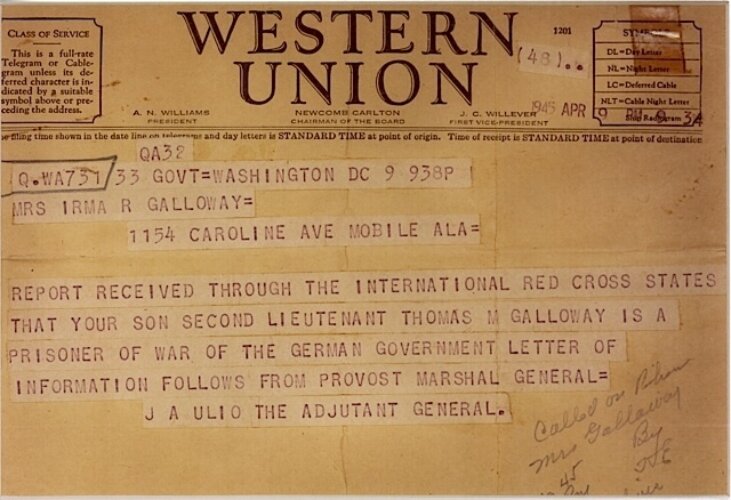 CLASS OF SERVICE
This is a full-rate
Telegram or Cable-
gram unless its de-
ferred character is in-
dicated by a suitable
symbol above or pre-
ceding the address.
WESTERN
UNION
1201
(48)..
A. N. WILLIAMS
PRESIDENT
NEWCOMB CARLTON
CHAIRMAN OF THE BOARD
J. C. WILLEVER
FIRST VICE-PRESIDENT
1945 APR 9 PM 9 34
SYMBOLS
DL=Day Letter
NL=Night Letter
LC=Deferred Cable
NLT=Cable Night Letter
Ship Radiogram
filing time shown in the date line on telegrams and day letters is STANDARD TIME at point of origin. Time of receipt is STANDARD TIME at point of destination
QA32
Q.WA731 33 GOVT=WASHINGTON DC 9 938P
MRS IRMA R GALLOWAY=
1154 CAROLINE AVE MOBILE ALA=
REPORT RECEIVED THROUGH THE INTERNATIONAL RED CROSS STATES
THAT YOUR SON SECOND LIEUTENANT THOMAS M GALLOWAY IS A
PRISONER OF WAR OF THE GERMAN GOVERNMENT LETTER OF
INFORMATION FOLLOWS FROM PROVOST MARSHAL GENERAL=
J A ULIO THE ADJUTANT GENERAL.
Called on
Mrs Gallaway
45 By